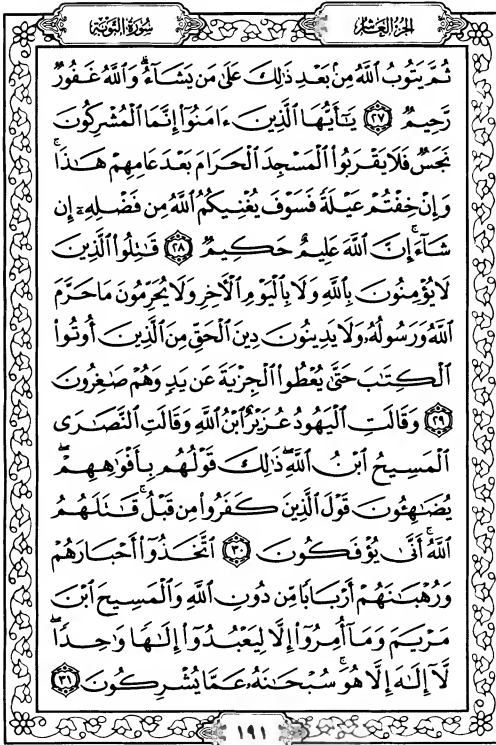 سُورَةُ التَّوْبَةِ
الجُزْءُ العَاشِرُ
ثُمَّ يَتُوبُ ٱللَّهُ مِنۢ بَعْدِ ذَٰلِكَ عَلَىٰ مَن يَشَآءُۗ وَٱللَّهُ غَفُورٌ
رَّحِيمٌ ٢٧ يَـٰٓأَيُّهَا ٱلَّذِينَ ءَامَنُوٓا۟ إِنَّمَا ٱلْمُشْرِكُونَ
نَجَسٌ فَلَا يَقْرَبُوا۟ ٱلْمَسْجِدَ ٱلْحَرَامَ بَعْدَ عَامِهِمْ هَـٰذَاۚ
وَإِنْ خِفْتُمْ عَيْلَةً فَسَوْفَ يُغْنِيكُمُ ٱللَّهُ مِن فَضْلِهِۦٓ إِن
شَآءَۚ إِنَّ ٱللَّهَ عَلِيمٌ حَكِيمٌ ٢٨ قَـٰتِلُوا۟ ٱلَّذِينَ
لَا يُؤْمِنُونَ بِٱللَّهِ وَلَا بِٱلْيَوْمِ ٱلْـَٔاخِرِ وَلَا يُحَرِّمُونَ مَا حَرَّمَ
ٱللَّهُ وَرَسُولُهُۥ وَلَا يَدِينُونَ دِينَ ٱلْحَقِّ مِنَ ٱلَّذِينَ أُوتُوا۟
ٱلْكِتَـٰبَ حَتَّىٰ يُعْطُوا۟ ٱلْجِزْيَةَ عَن يَدٍ وَهُمْ صَـٰغِرُونَ
٢٩ وَقَالَتِ ٱلْيَهُودُ عُزَيْرٌ ٱبْنُ ٱللَّهِ وَقَالَتِ ٱلنَّصَـٰرَى
ٱلْمَسِيحُ ٱبْنُ ٱللَّهِۖ ذَٰلِكَ قَوْلُهُم بِأَفْوَٰهِهِمْۖ
يُضَـٰهِـُٔونَ قَوْلَ ٱلَّذِينَ كَفَرُوا۟ مِن قَبْلُۚ قَـٰتَلَهُمُ
ٱللَّهُۚ أَنَّىٰ يُؤْفَكُونَ ٣٠ ٱتَّخَذُوٓا۟ أَحْبَارَهُمْ
وَرُهْبَـٰنَهُمْ أَرْبَابًا مِّن دُونِ ٱللَّهِ وَٱلْمَسِيحَ ٱبْنَ
مَرْيَمَ وَمَآ أُمِرُوٓا۟ إِلَّا لِيَعْبُدُوٓا۟ إِلَـٰهًا وَٰحِدًاۖ
لَّآ إِلَـٰهَ إِلَّا هُوَۚ سُبْحَـٰنَهُۥ عَمَّا يُشْرِكُونَ ٣١
١٩١